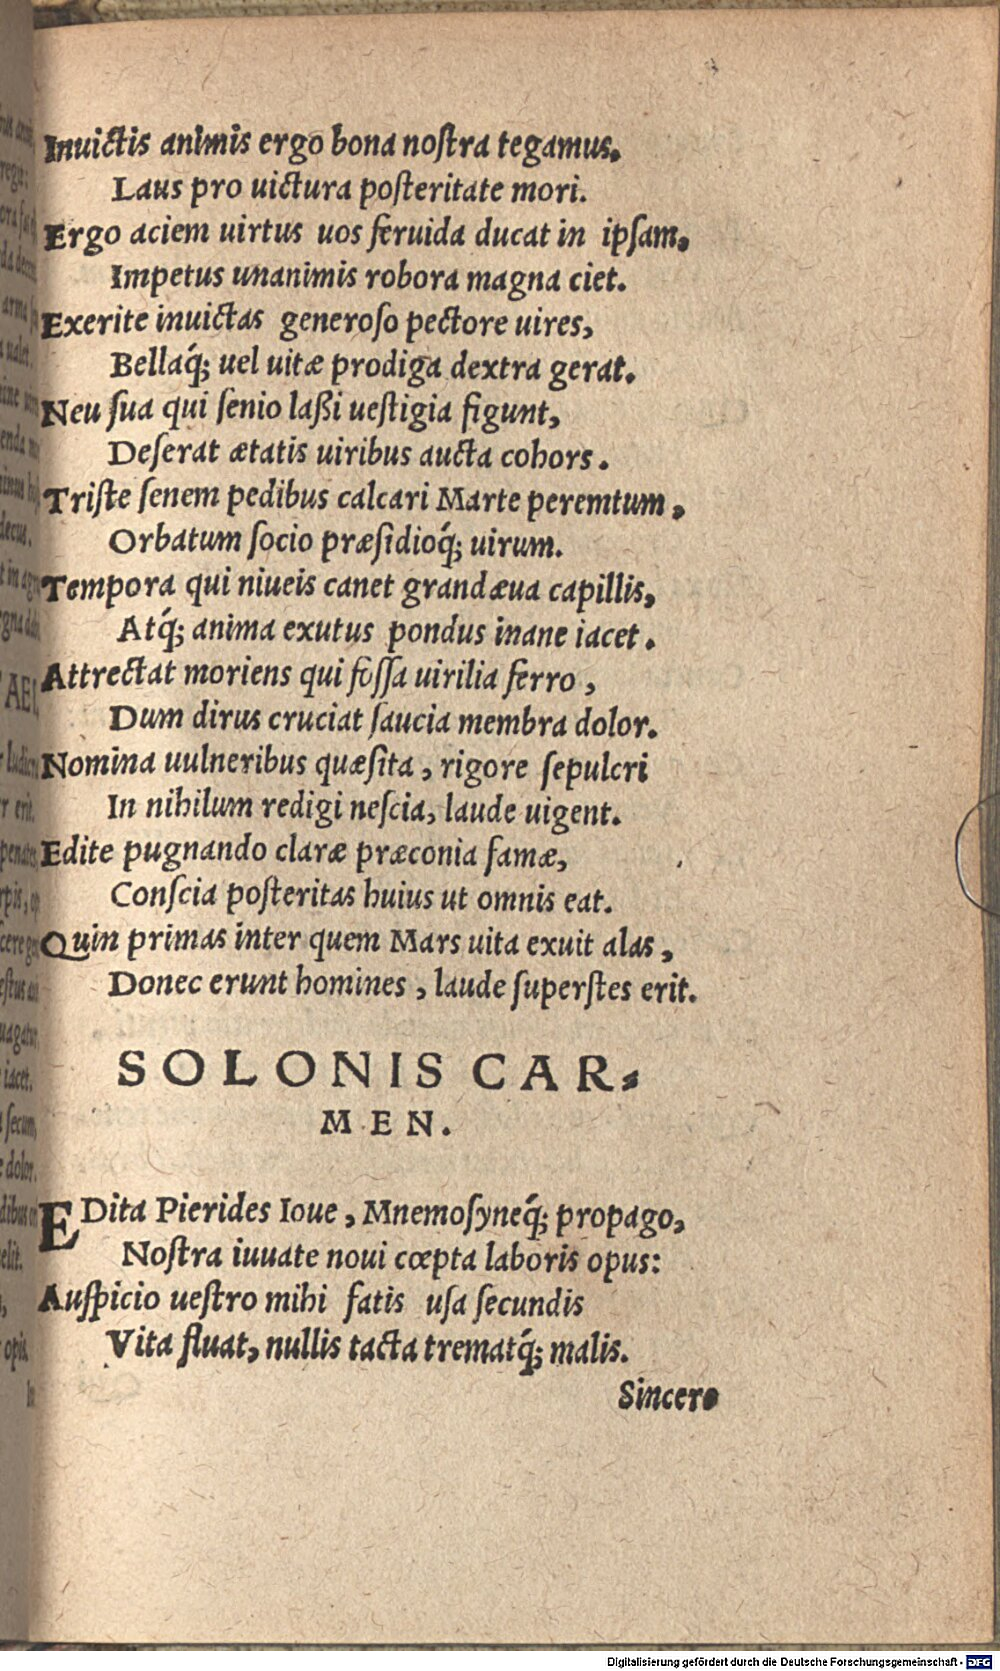 Inuictis animis ergo bona noſtra tegamus.
Laus pro uictura poſteritate mori.
Ergo aciem uirtus uos feruida ducat in ipſam.
Impetus unanimis robora magna ciet.
Exerite inuictas generoſo pectore uires,
Bellaq́; uel uitæ prodiga dextra gerat.
Neu ſua qui ſenio laßi ueſtigia figunt,
Deſerat ætatis uiribus aucta cohors.
Triſte ſenem pedibus calcari Marte peremtum,
Orbatum ſocio præſidioq́; uirum.
Tempora qui niueis canet grandæua capillis,
Atq́; anima exutus pondus inane iacet.
Attrectat moriens qui foſſa uirilia ferro,
Dum dirus cruciat ſaucia membra dolor.
Nomina uulneribus quæſita, rigore ſepulcri
In nihilum redigi neſcia, laude uigent.
Edite pugnando claræ præconia famæ,
Conſcia poſteritas huius ut omnis eat.
Quin primas inter quem Mars uita exuit alas,
Donec erunt homines, laude ſuperſtes erit.
SOLONIS CAR-
MEN.
EDita Pierides Ioue, Mnemoſyneq́; propago,
Noſtra iuuate noui cœpta laboris opus:
Auſpicio ueſtro mihi fatis uſa ſecundis
Vita fluat, nullis tacta trematq́; malis.
Sincero
Digitalisierung gefördert durch die Deutsche Forschungsgemeinschaft - DFG